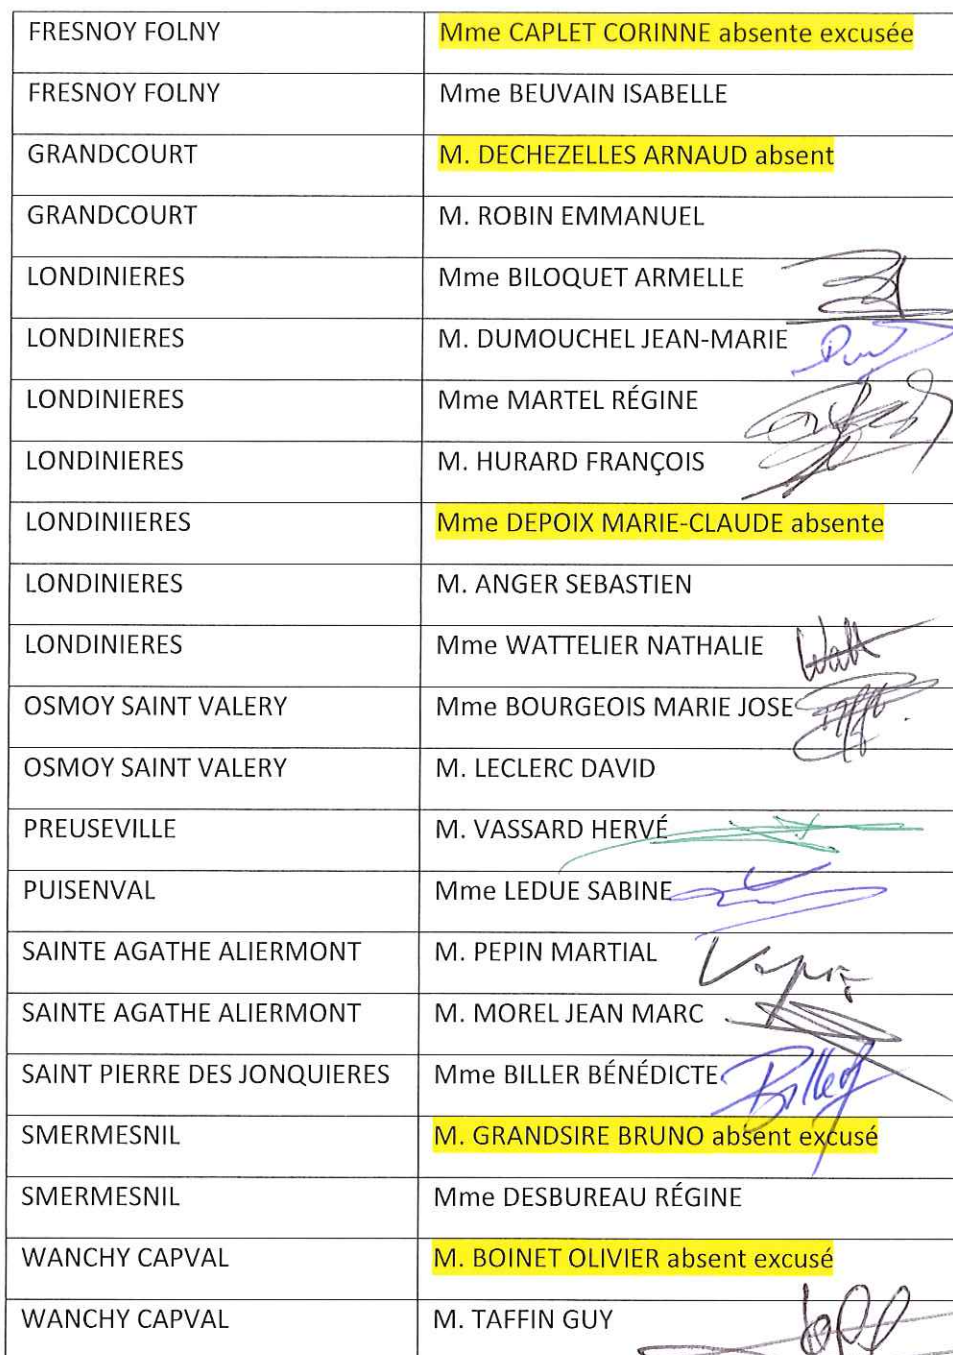 FRESNOY FOLNY Mme CAPLET CORINNE absente excusée
FRESNOY FOLNY Mme BEUVAIN ISABELLE
GRANDCOURT M. DECHEZELLES ARNAUD absent
GRANDCOURT M. ROBIN EMMANUEL
LONDINIERES Mme BILOQUET ARMELLE
LONDINIERES M. DUMOUCHEL JEAN-MARIE
LONDINIERES Mme MARTEL RÉGINE
LONDINIERES M. HURARD FRANÇOIS
LONDINIIERES Mme DEPOIX MARIE-CLAUDE absente
LONDINIERES M. ANGER SEBASTIEN
LONDINIERES Mme WATTELIER NATHALIE
OSMOY SAINT VALERY Mme BOURGEOIS MARIE JOSE
OSMOY SAINT VALERY M. LECLERC DAVID
PREUSEVILLE M. VASSARD HERVÉ
PUISENVAL Mme LEDUE SABINE
SAINTE AGATHE ALIERMONT M. PEPIN MARTIAL
SAINTE AGATHE ALIERMONT M. MOREL JEAN MARC
SAINT PIERRE DES JONQUIERES Mme BILLER BÉNÉDICTE
SMERMESNIL M. GRANDSIRE BRUNO absent excusé
SMERMESNIL Mme DESBUREAU RÉGINE
WANCHY CAPVAL M. BOINET OLIVIER absent excusé
WANCHY CAPVAL M. TAFFIN GUY